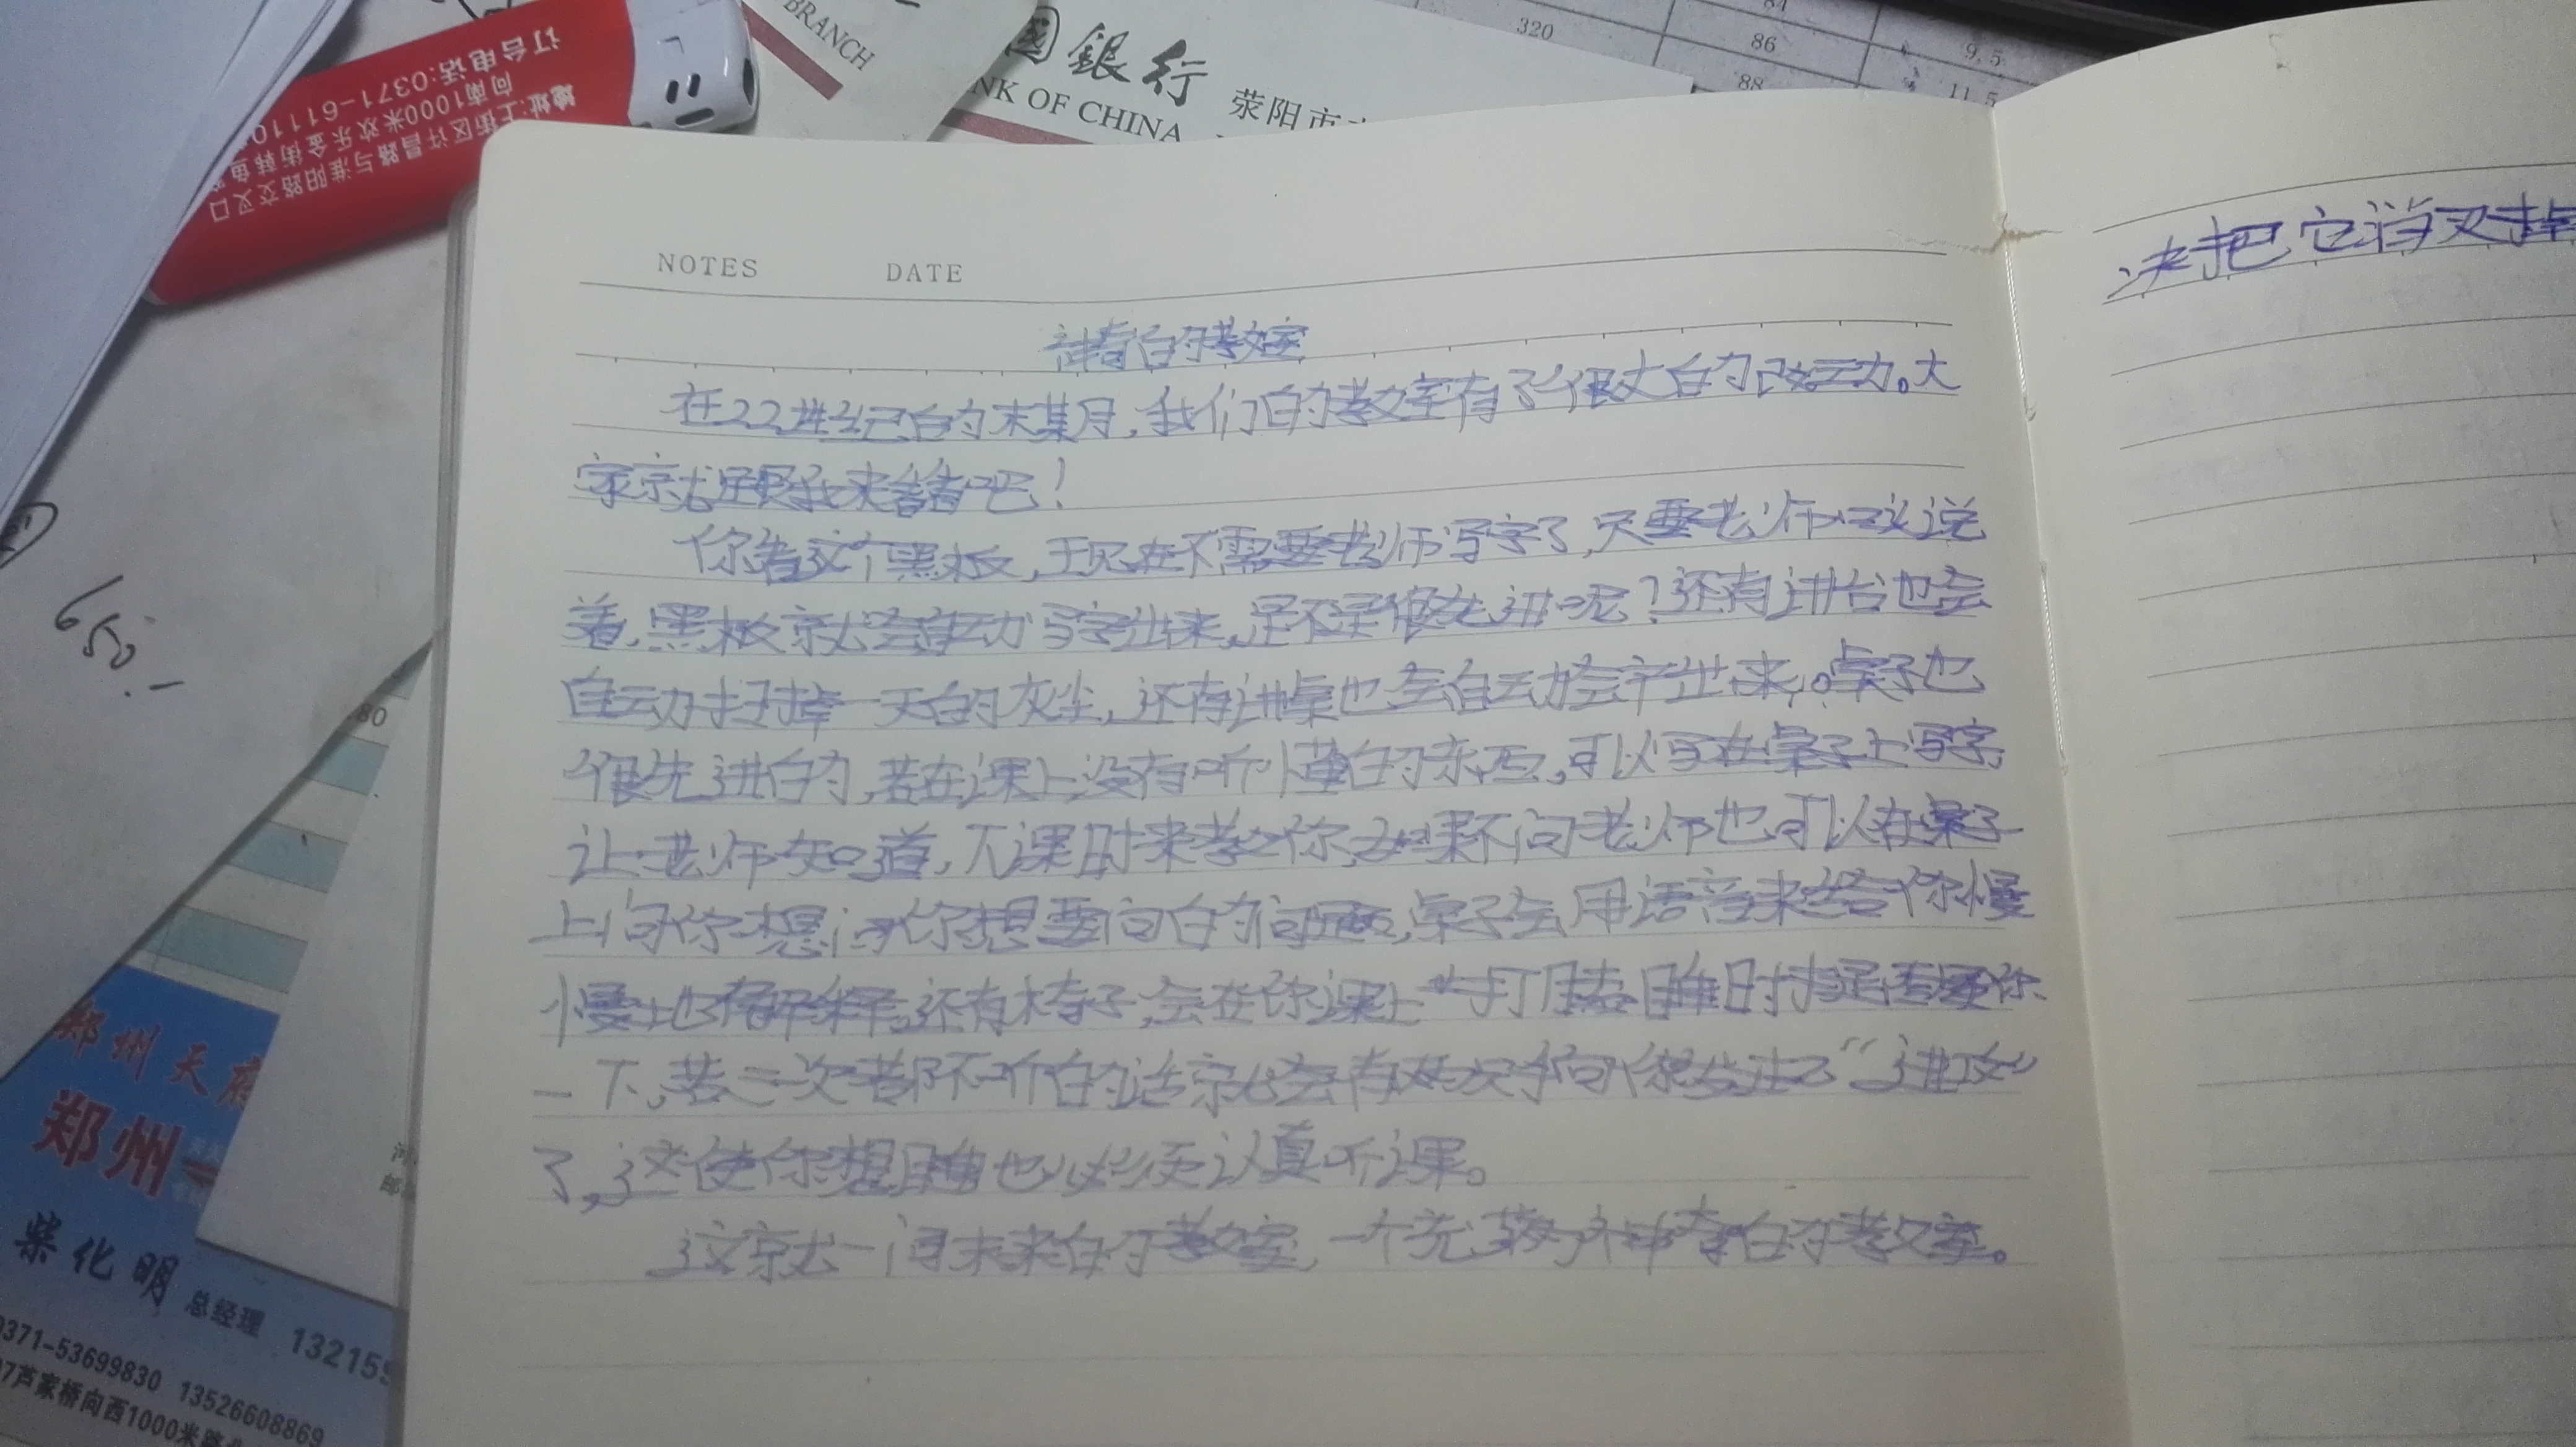 订台电话:0371-6111
向南1000米欢乐金街韩鱼
地址:上街区许昌路与淮阳路交叉口
BRANCH
國銀行
NK OF CHINA
荥阳市
320
84
86
88
9.5
11.5
NOTES DATE
神奇的教室
在22世纪的末某月,我们的教室有了很大的改动。大
家就跟我来看看吧!
你看这个黑板,现在不需要老师写字了,只要老师一说
着,黑板就会自动写字出来,是不是很先进呢?还有讲台也会
自动扫掉一天的灰尘,还有讲桌也会自动会产出来。桌子也
很先进的,若在课上没有听懂的东西,可以写在桌子上写字,
让老师知道,下课时来教你,如果不问老师也可以在桌子
上问你想问你想要问的问题,桌子会用语音来给你慢
慢地解释,还有椅子,会在你课上打瞌睡时提醒你
一下,若三次都不听的话就会有次手向你发动"进攻"
了,这使你想睡也必须认真听课。
这就一间未来的教室,一个充满了神奇的教室。
决把它消灭掉
650.-
80
郑州天府
郑州
柴化明 总经理 132159
0371-53699830 13526608869
7芦家桥向西1000米路